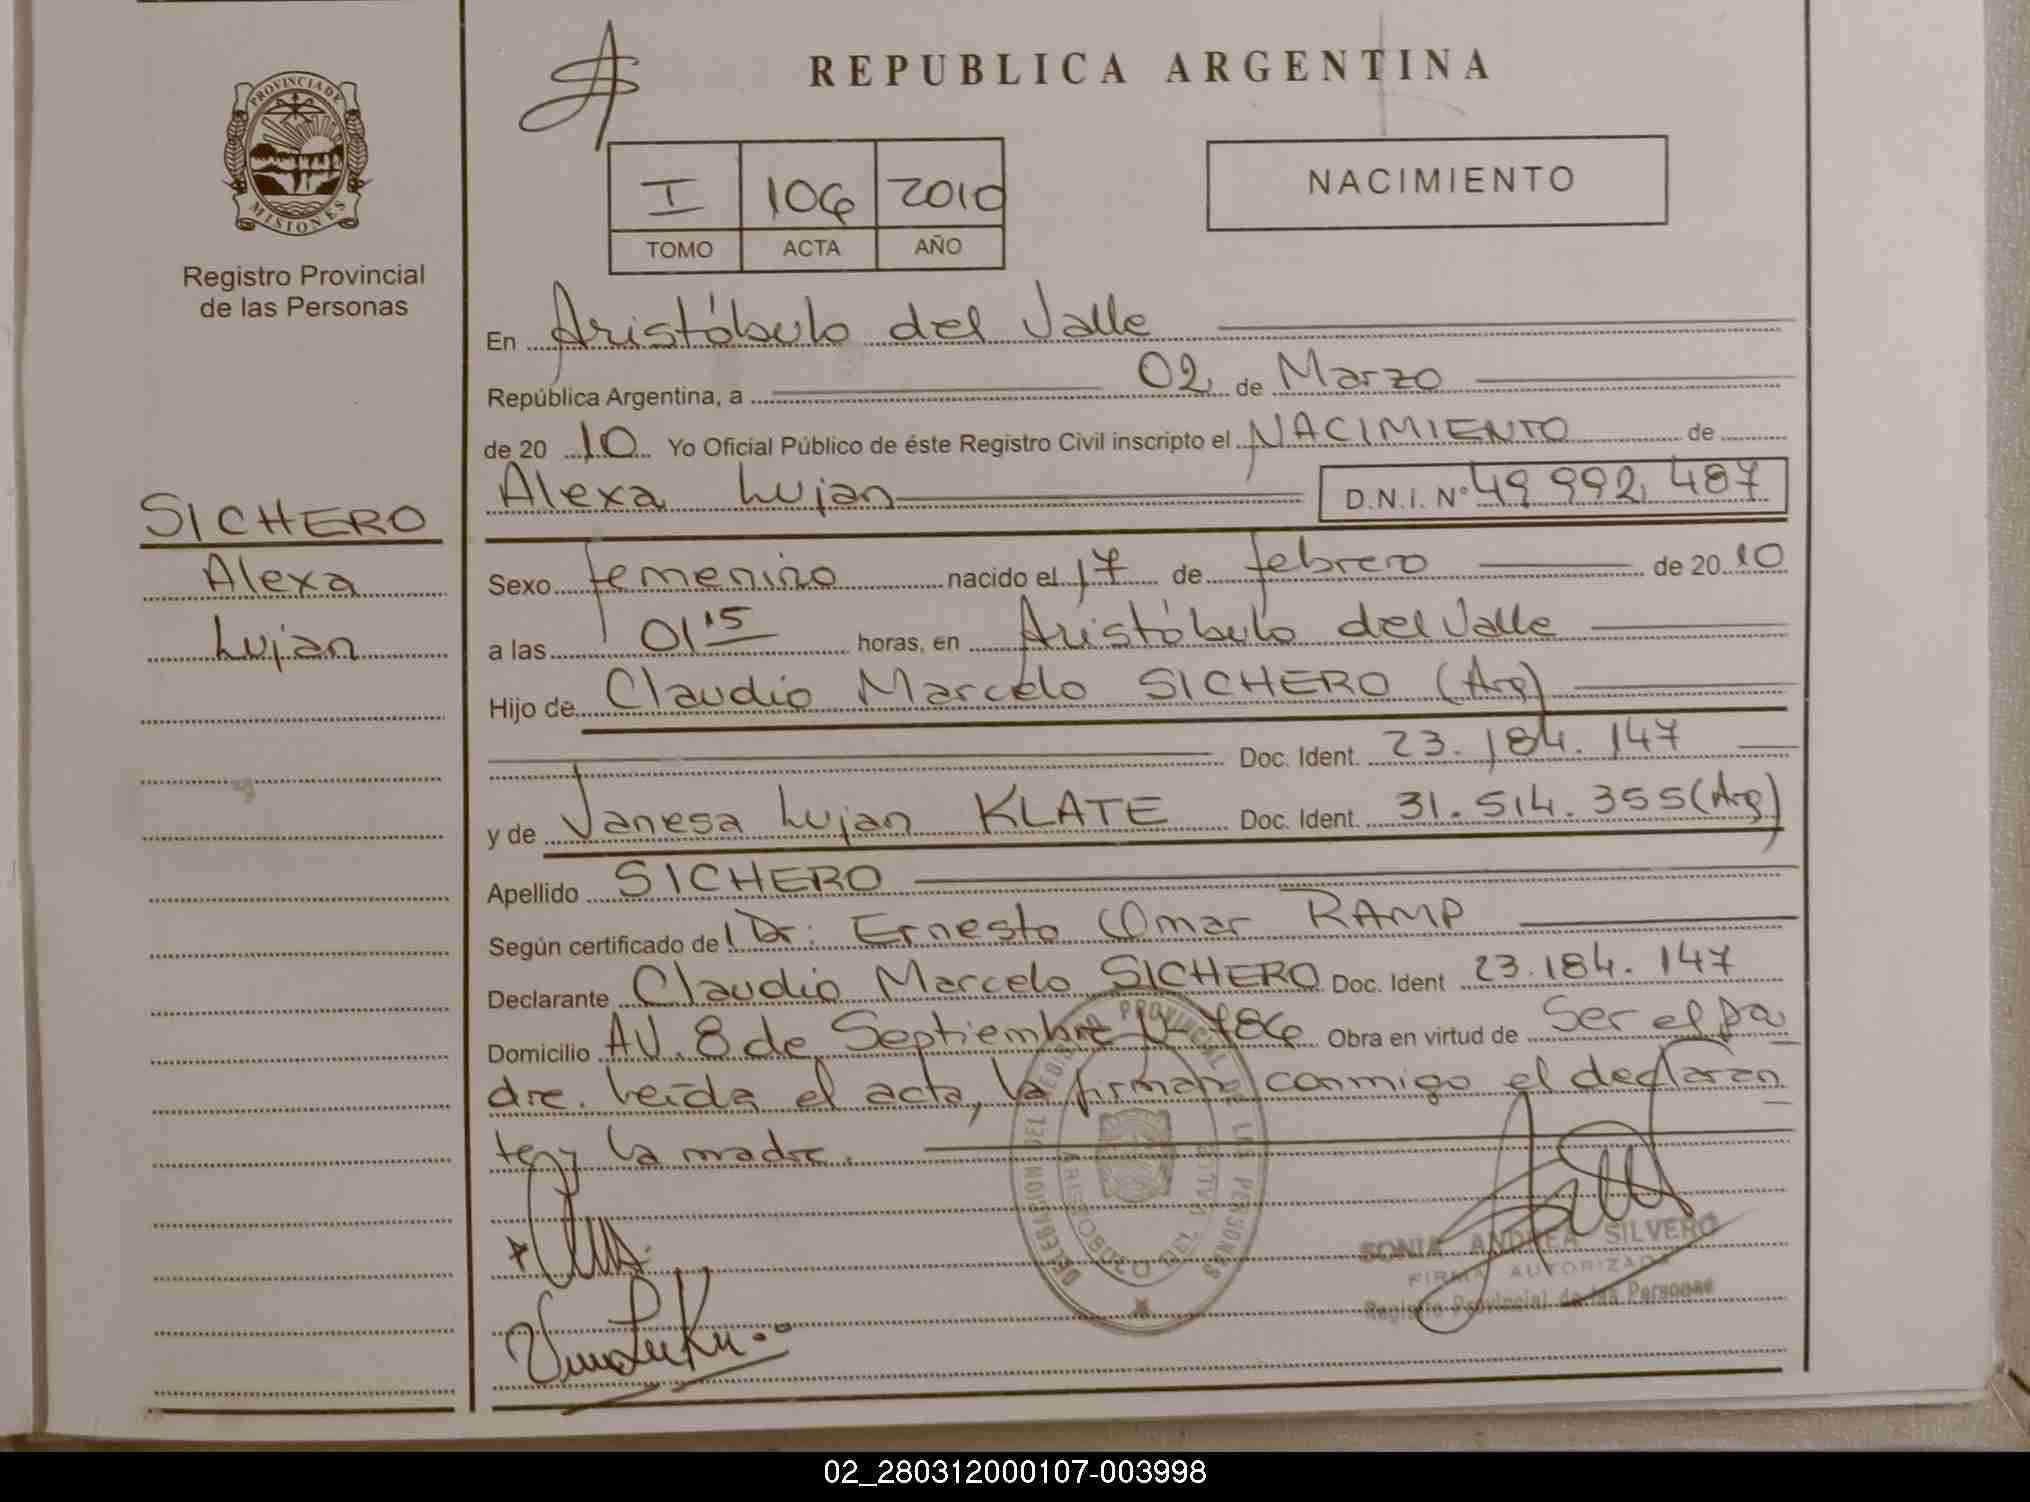 PROVINCIA DE
MISIONES
Registro Provincial
de las Personas
SICHERO
Alexa
Lujan
REPUBLICA ARGENTINA
I 106 2010
TOMO ACTA AÑO
NACIMIENTO
En Aristóbulo del Valle
República Argentina, a 02 de Marzo
de 20 10 Yo Oficial Público de éste Registro Civil inscripto el NACIMIENTO de
Alexa Lujan D.N.I. Nº 49 992 487
Sexo femenino nacido el 17 de febrero de 20 10
a las 01 15 horas, en Aristóbulo del Valle
Hijo de Claudio Marcelo SICHERO (Arg)
Doc. Ident. 23.184.147
y de Vanesa Lujan KLATE Doc. Ident. 31.514.355 (Arg)
Apellido SICHERO
Según certificado de Dr: Ernesto Omar RAMP
Declarante Claudio Marcelo SICHERO Doc. Ident 23.184.147
Domicilio AV. 8 de Septiembre 786 Obra en virtud de Ser el pa
dre. Leída el acta, la firman conmigo el declaran
te y la madre.
DELEGACION DEL REGISTRO PROVINCIAL DE LAS PERSONAS
ARISTOBULO DEL VALLE
SONIA ANDREA SILVERO
FIRMA AUTORIZADA
Registro Provincial de las Personas
02_280312000107-003998